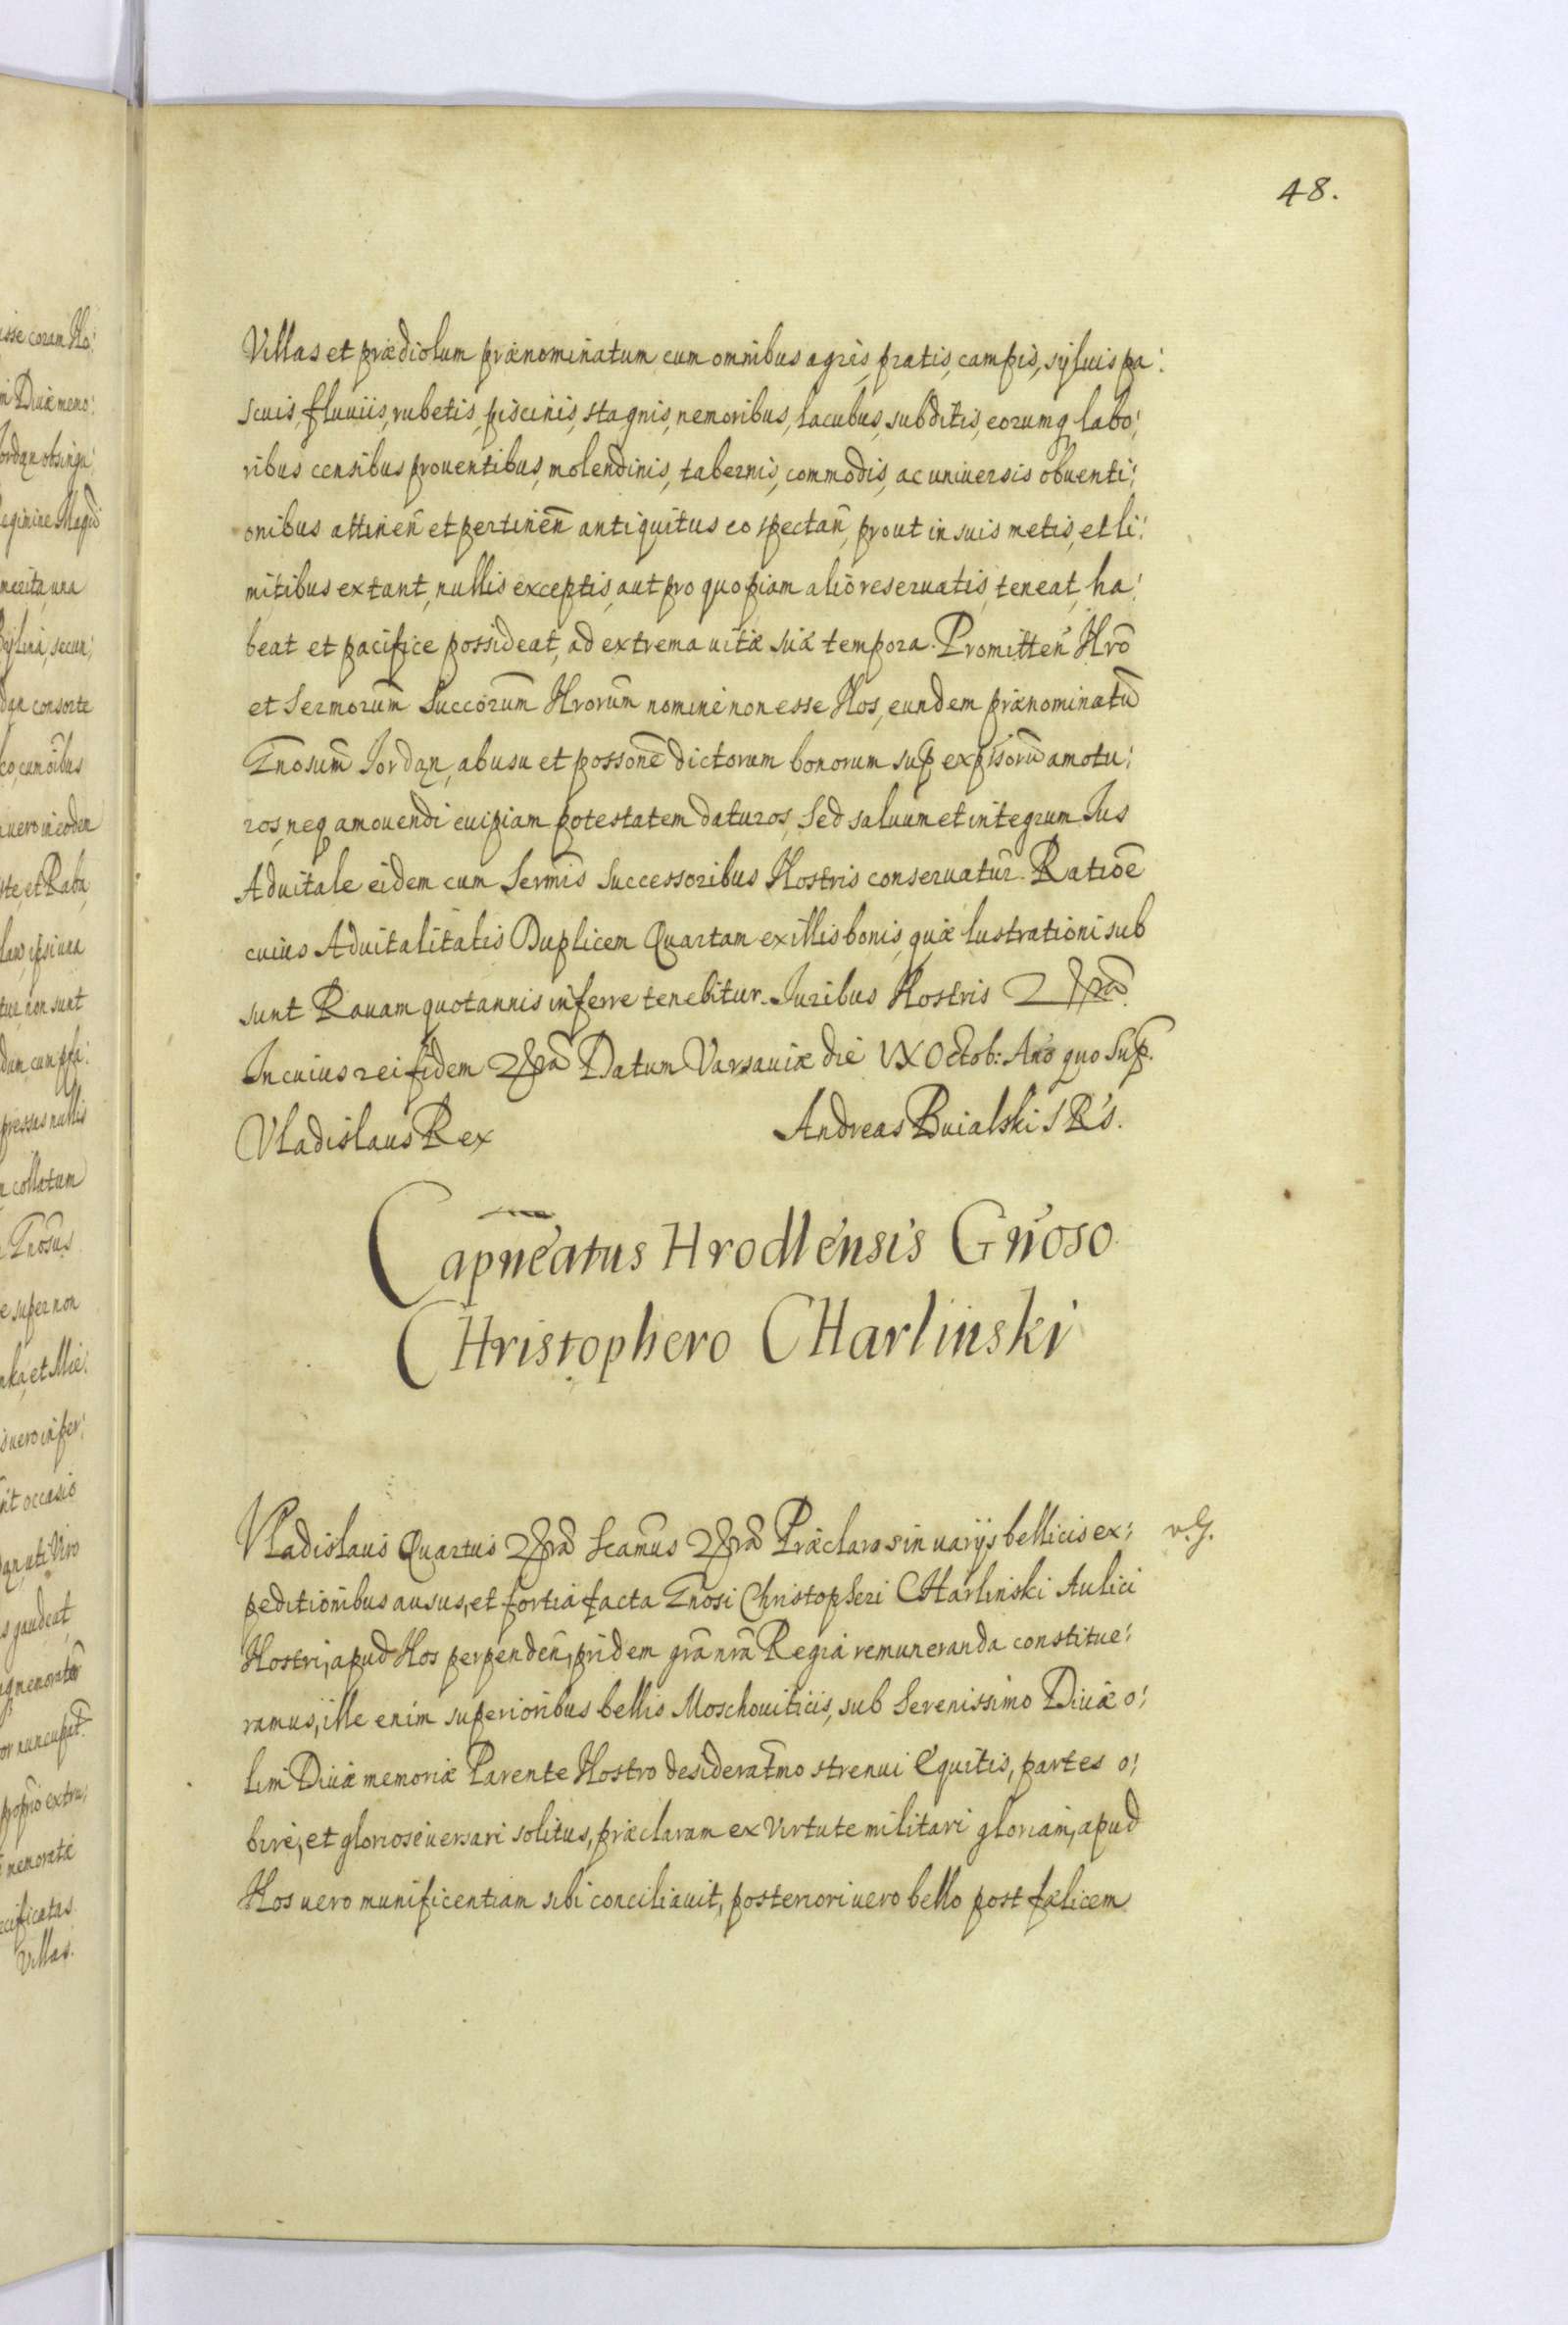 48.
Villas et prædiolum prænominatum cum omnibus agris, pratis, campis, syluis pa:
scuis, fluuiis, rubetis, piscinis, stagnis, nemoribus, lacubus, subditis, eorumq labo:
ribus censibus prouentibus, molendinis, tabernis, commodis, ac uniuersis obuenti:
onibus attineñ et pertineñ antiquitus eo spectañ, prout in suis metis, et li:
mitibus extant, nullis exceptis, aut pro quopiam alio reseruatis, teneat, ha:
beat et pacifice possideat, ad extrema uitæ suæ tempora. Promitteñ Nro
et Sermorum Succorum Nrorum nomine non esse Nos, eundem prænominatũ
Gnosum Jordan, ab usu et possone dictorum bonorum sup expssorũ amotu:
ros, neq amouendi cuipiam potestatem daturos, Sed saluum et integrum Jus
Aduitale eidem cum Sermis Successoribus Nostris conseruatur. Ratioe
cuius Aduitalitatis Duplicem Quartam ex illis bonis, quæ lustrationi sub
sunt Rauam quotannis inferre tenebitur. Juribus Nostris
In cuius rei fidem Datum Varsauiæ die IX Octob: Ano quo Sup.
Vladislaus Rex
Andreas Buialski SRS.
Capneatus Hrodlensis Gnoso
CHristophero CHarlinski
Vladislaus Quartus Scamus Præclaros in uarijs bellicis ex: v.G.
peditionibus ausus, et fortia facta Gnosi Christopheri CHarlinski Aulici
Nostri, apud Nos perpendeñ, pridem gra nra Regia remuneranda constitue:
ramus, ille enim superioribus bellis Moschouiticis, sub Serenissimo Diuæ o:
lim Diuæ memoriæ Parente Nostro desideratmo strenui Equitis, partes o:
bire, et gloriose uersari solitus, præclaram ex Virtute militari gloriam, apud
Nos uero munificentiam sibi conciliauit, posteriori uero bello post fælicem